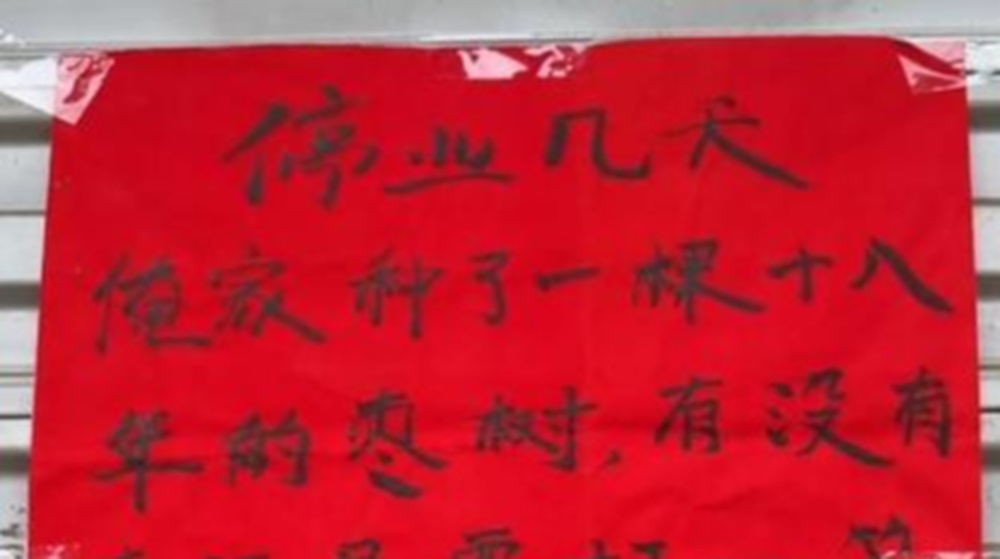 停业几天
俺家种了一棵十八
年的枣树,有没有